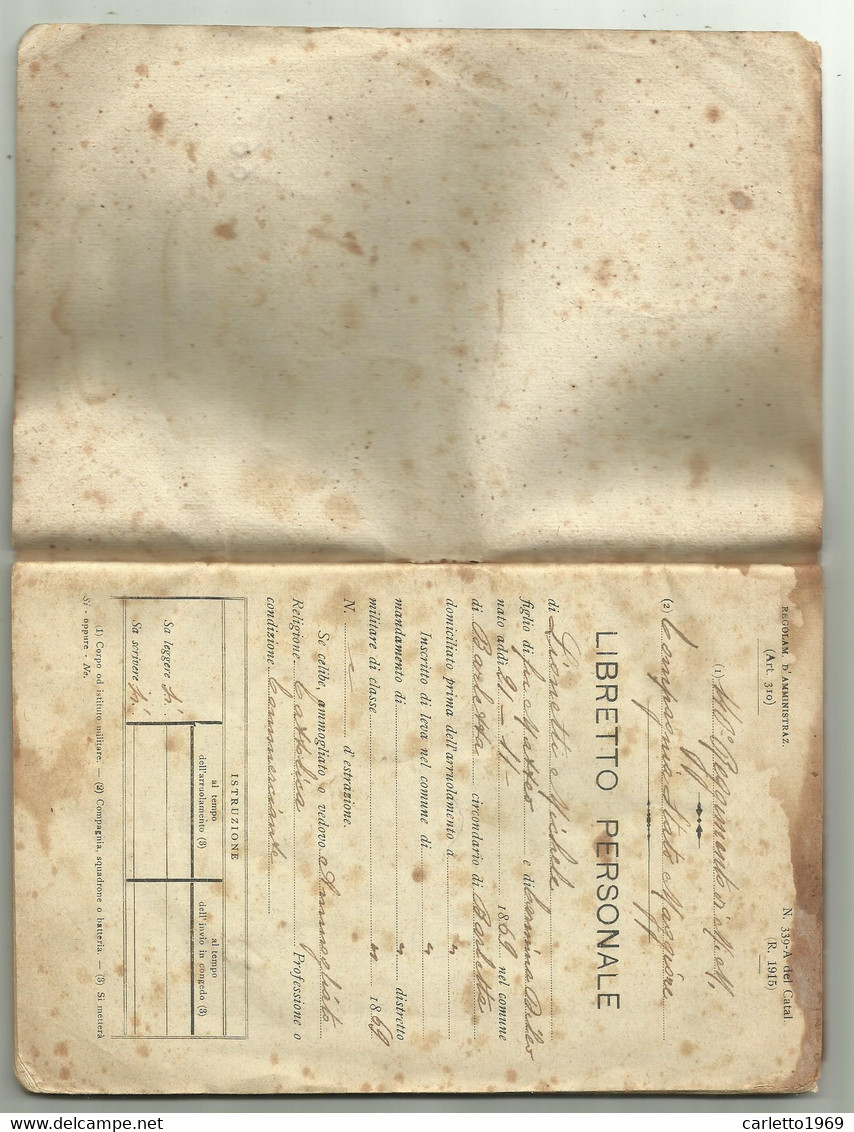 REGOLAM. D'AMMINISTRAZ.
(Art. 310)
N. 339-A del Catal.
(R. 1915)
(1) Reggimento
(2) Compagnia Stato Maggiore
LIBRETTO PERSONALE
di Lionetti Michele
figlio di fu Matteo e di
nato addì 21-11- 1869 nel comune
di Barletta circondario di Barletta
domiciliato prima dell'arruolamento a "
Inscritto di leva nel comune di "
mandamento di " distretto
militare di classe " 1869
N. d'estrazione.
Se celibe, ammogliato o vedovo Ammogliato
Religione Cattolica Professione o
condizione Commerciante
ISTRUZIONE
al tempo dell'arruolamento (3)
al tempo dell'invio in congedo (3)
Sa leggere Si
Sa scrivere Si
(1) Corpo od istituto militare. — (2) Compagnia, squadrone o batteria. — (3) Si metterà
Si - oppure - No.
www.delcampe.net
carletto1969